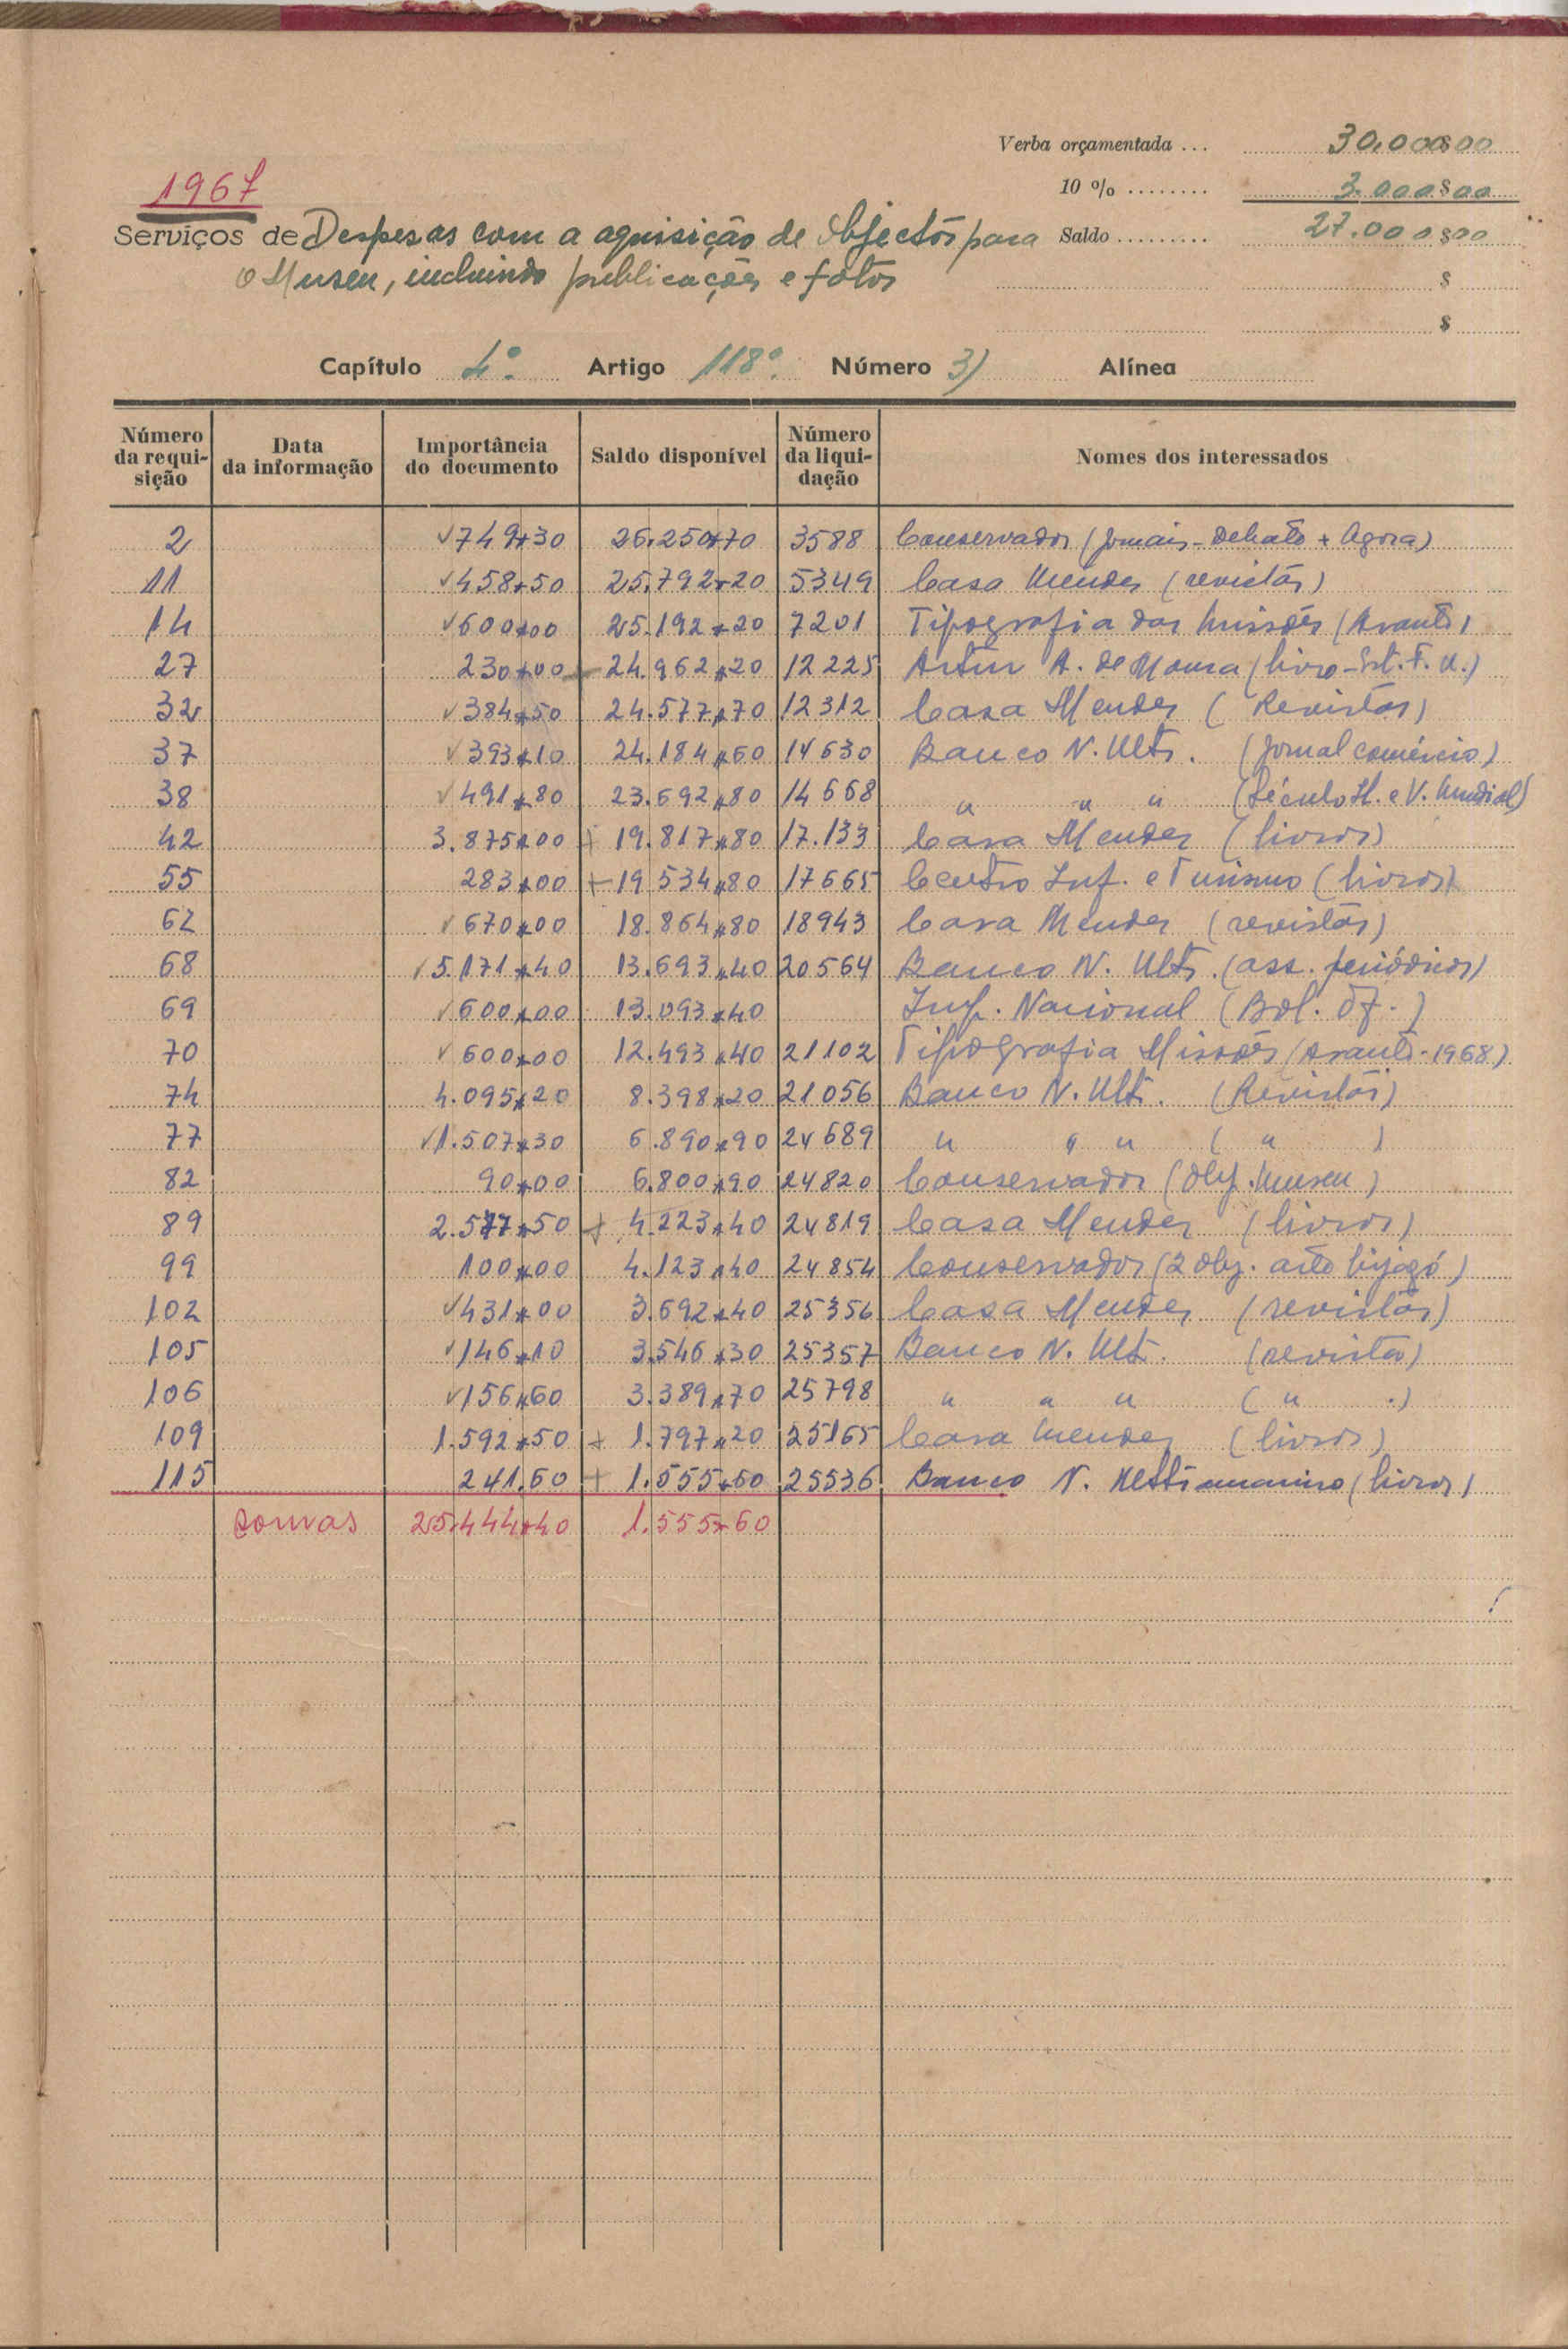 Verba orçamentada ... 30.000$00
1967
10 % ........ 3.000$00
Serviços de Despesas com a aquisição de objectos para
Saldo ......... 27.000$00
o Museu, incluindo publicações e fotos
$
$
Capítulo 4.º Artigo 118º. Número 3) Alínea
Número da requi-sição Data da informação Importância do documento Saldo disponível Número da liqui-dação Nomes dos interessados
2 √749$30 26.250$70 3588 Conservador (Jornais - Debate + Agora)
11 √458$50 25.792$20 5349 Casa Mendes (revistas)
14 √600$00 25.192$20 7201 Tipografia das Missões (Arauto)
27 230$00 24.962$20 12225 Artur A. de Moura (livro - F. U.)
32 √384$50 24.577$70 12312 Casa Mendes (Revistas)
37 √393$10 24.184$60 14630 Banco N. Ultr. (Jornal comércio)
38 √491$80 23.692$80 14668 " " " (Século Il. e V. Mundial)
42 3.875$00 + 19.817$80 17.133 Casa Mendes (livros)
55 283$00 + 19.534$80 17665 Centro Inf. e Turismo (livros)
62 √670$00 18.864$80 18943 Casa Mendes (revistas)
68 √5.171$40 13.693$40 20564 Banco N. Ultr. (ass. periódicos)
69 √600$00 13.093$40 Imp. Nacional (Bol. Of.)
70 √600$00 12.493$40 21102 Tipografia Missões (Arauto - 1968)
74 4.095$20 8.398$20 21056 Banco N. Ultr. (Revistas)
77 √1.507$30 6.890$90 24689 " " " ( " )
82 90$00 6.800$90 24820 Conservador (Obj. Museu)
89 2.577$50 + 4.223$40 24819 Casa Mendes (livros)
99 100$00 4.123$40 24854 Conservador (2 obj. arte bijagó)
102 √431$00 3.692$40 25356 Casa Mendes (revistas)
105 √146$10 3.546$30 25357 Banco N. Ult. (revista)
106 √156$60 3.389$70 25798 " " " ( " .)
109 1.592$50 + 1.797$20 25165 Casa Mendes (livros)
115 241.60 + 1.555$60 25536 Banco N. Ultramarino (livros)
somas 25.444$40 1.555$60